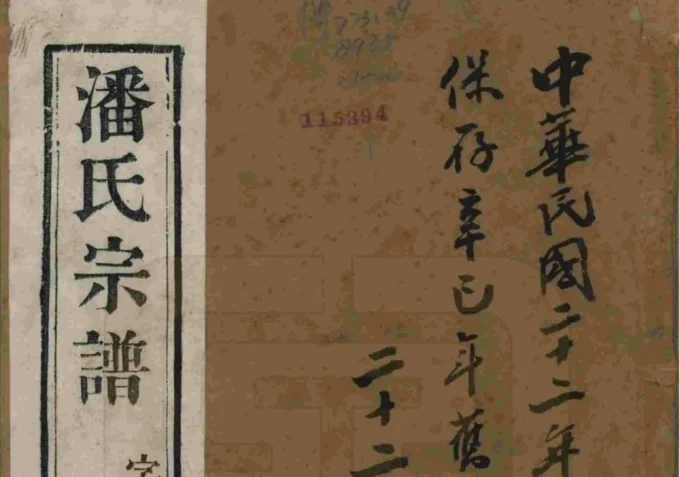 中華民國二十二年
保存辛巳年舊
二十二
115394
潘氏宗譜
字